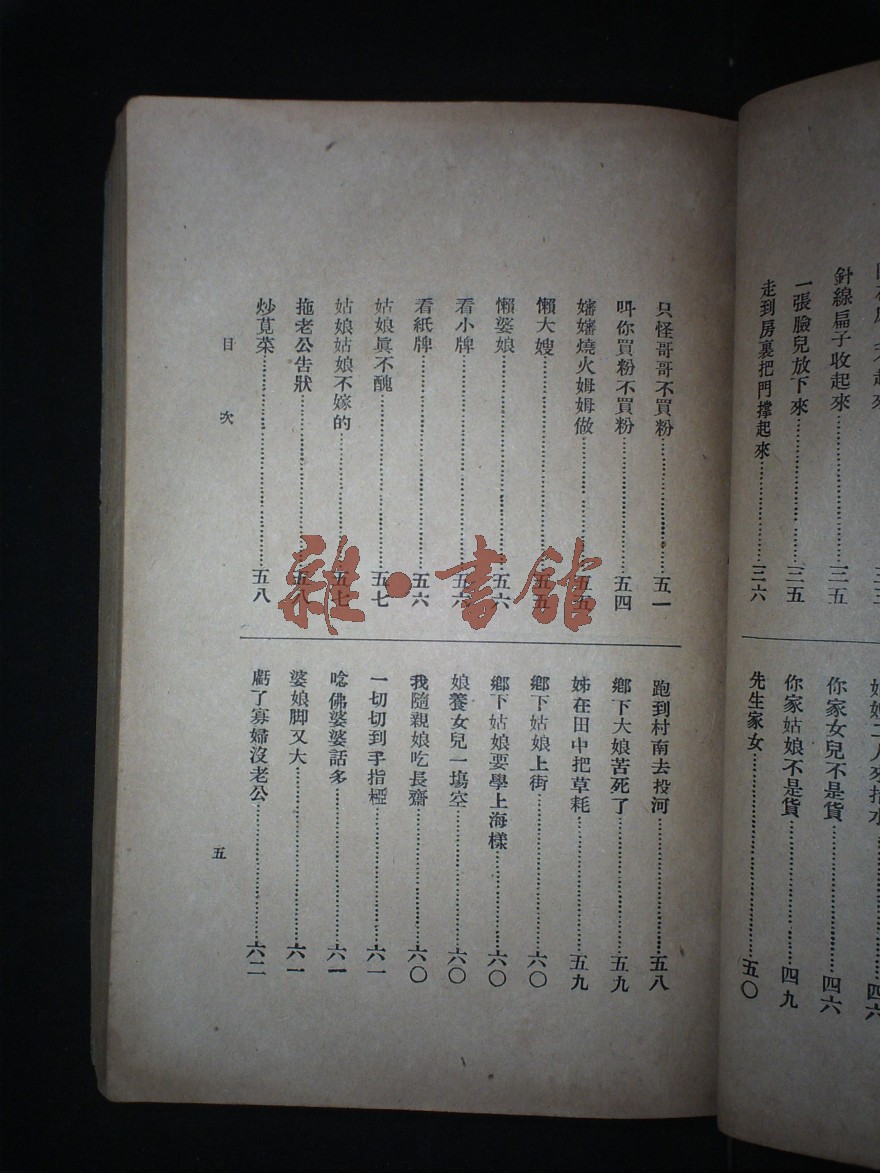 針線扁子收起來……三五
一張臉兒放下來……三五
走到房裏把門撐起來……三六
你家女兒不是貨……四六
你家姑娘不是貨……四九
先生家女……五〇
只怪哥哥不買粉……五一
叫你買粉不買粉……五四
嬸嬸燒火姆姆做……五五
懶大嫂……五五
懶婆娘……五六
看小牌……五六
看紙牌……五六
姑娘眞不醜……五七
姑娘姑娘不嫁的……五七
拖老公告狀……五八
炒莧菜……五八
跑到村南去投河……五八
鄉下大娘苦死了……五九
姊在田中把草耗……五九
鄉下姑娘上街……六〇
鄉下姑娘要學上海樣……六〇
娘養女兒一場空……六〇
我隨親娘吃長齋……六〇
一切切到手指極……六一
唸佛婆婆話多……六一
婆娘脚又大……六一
虧了寡婦沒老公……六二
目次
五
雜·書館